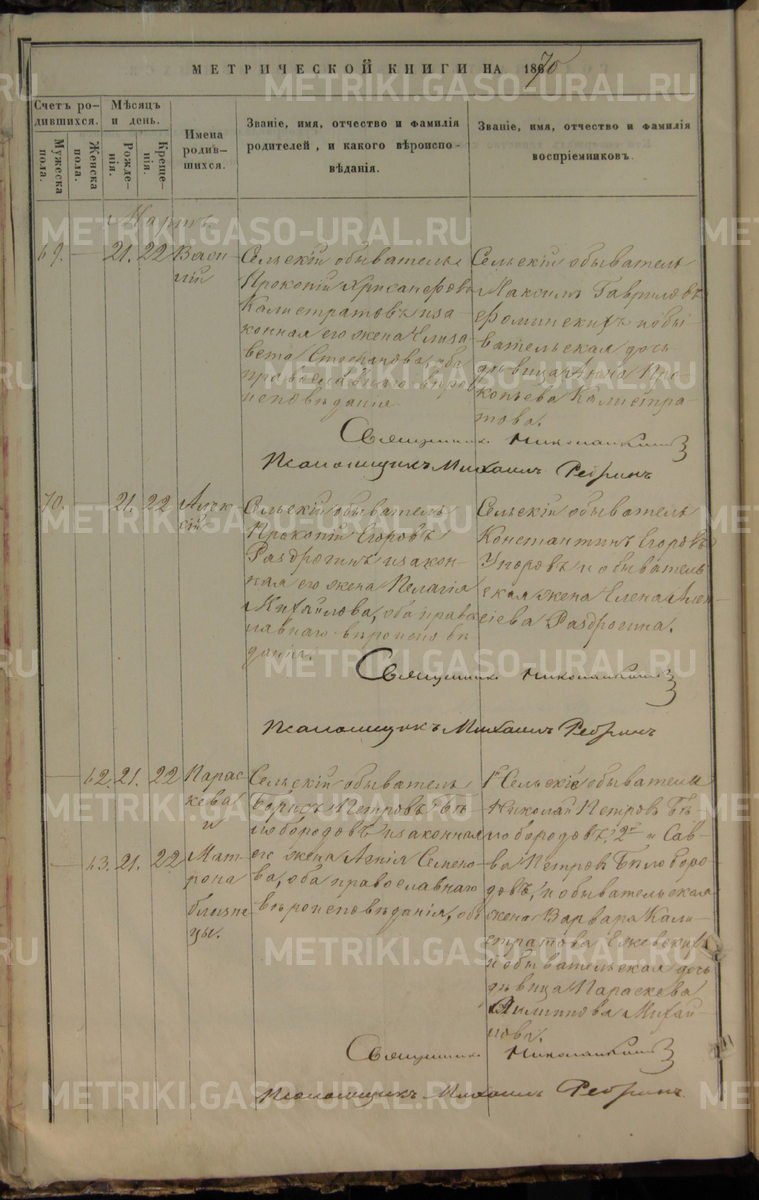 МЕТРИЧЕСКОЙ КНИГИ НА 1870
Счетъ ро-
дившихся.
Мужеска
пола.
Женска
пола.
Мѣсяцъ
и день.
Рожде-
нія.
Креще-
нія.
Имена
родив-
шихся.
Званіе, имя, отчество и фамилія
родителей, и какого вѣроиспо-
вѣданія.
Званіе, имя, отчество и фамилія
воспріемниковъ.
Мартъ
69. — 21. 22
Васи-
лій
Сельскій обыватель
Прокопій Хрисанфовъ
Калистратовъ и за-
конная его жена Елиза-
вета Степанова, оба
православнаго вѣро-
исповѣданія.
Сельскій обыватель
Максимъ Гавриловъ
Фоминскихъ и обы-
вательская дочь
дѣвица Анна Про-
копьева Калистра-
това.
Священникъ
Псаломщикъ Михаилъ Ребринъ
70. — 21. 22
Алек-
сій
Сельскій обыватель
Прокопій Егоровъ
Раздрогинъ и закон-
ная его жена Пелагія
Михайлова, оба право-
славнаго вѣроисповѣ-
данія.
Сельскій обыватель
Константинъ Егоровъ
Упоровъ и обыватель-
ская жена Елена Алек-
сіева Раздрогина.
Священникъ
Псаломщикъ Михаилъ Ребринъ
— 62. 21. 22
Парас-
кева
и
— 63. 21. 22
Мат-
рона
близне-
цы.
Сельскій обыватель
Борисъ Петровъ Бѣ-
лобородовъ и законная
его жена Агнія Семено-
ва, оба православнаго
вѣроисповѣданія,
1й Сельскіе обыватели
Николай Петровъ Бѣ-
лобородовъ, 2й и Сав-
ва Петровъ Бѣлоборо-
довъ, и обывательская
жена Варвара Кали-
стратова
и обывательская дочь
дѣвица Параскева
Филиппова Михай-
лова.
Священникъ
Псаломщикъ Михаилъ Ребринъ
METRIKI.GASO-URAL.RU